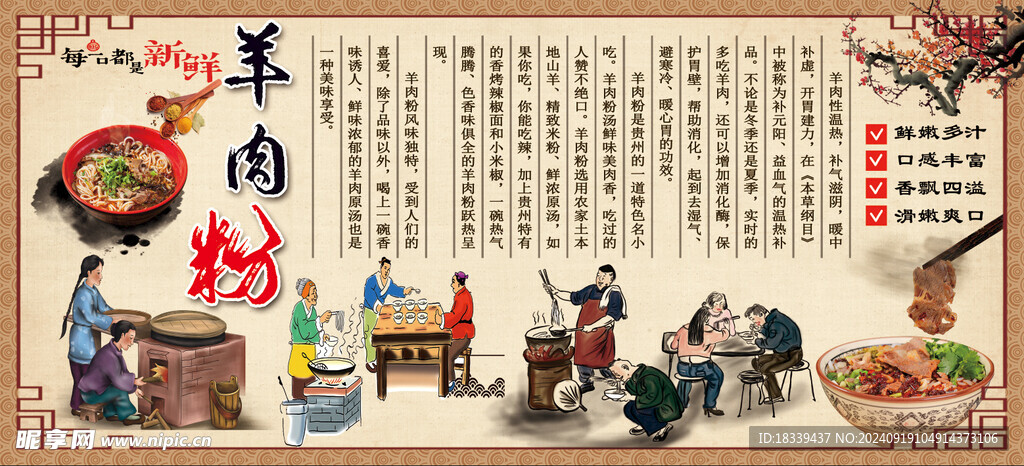 每一口都是新鲜
羊肉粉
羊肉性温热，补气滋阴，暖中
补虚，开胃建力，在《本草纲目》
中被称为补元阳、益血气的温热补
品。不论是冬季还是夏季，实时的
多吃羊肉，还可以增加消化酶，保
护胃壁，帮助消化，起到去湿气、
避寒冷、暖心胃的功效。
羊肉粉是贵州的一道特色名小
吃。羊肉粉汤鲜味美肉香，吃过的
人赞不绝口。羊肉粉选用农家土本
地山羊、精致米粉、鲜浓原汤，如
果你吃，你能吃辣，加上贵州特有
的香烤辣椒面和小米椒，一碗热气
腾腾、色香味俱全的羊肉粉跃热呈
现。
羊肉粉风味独特，受到人们的
喜爱，除了品味以外，喝上一碗香
味诱人、鲜味浓郁的羊肉原汤也是
一种美味享受。
鲜嫩多汁
口感丰富
香飘四溢
滑嫩爽口
昵享网 www.nipic.cn
ID:18339437 NO:20240919104914373106